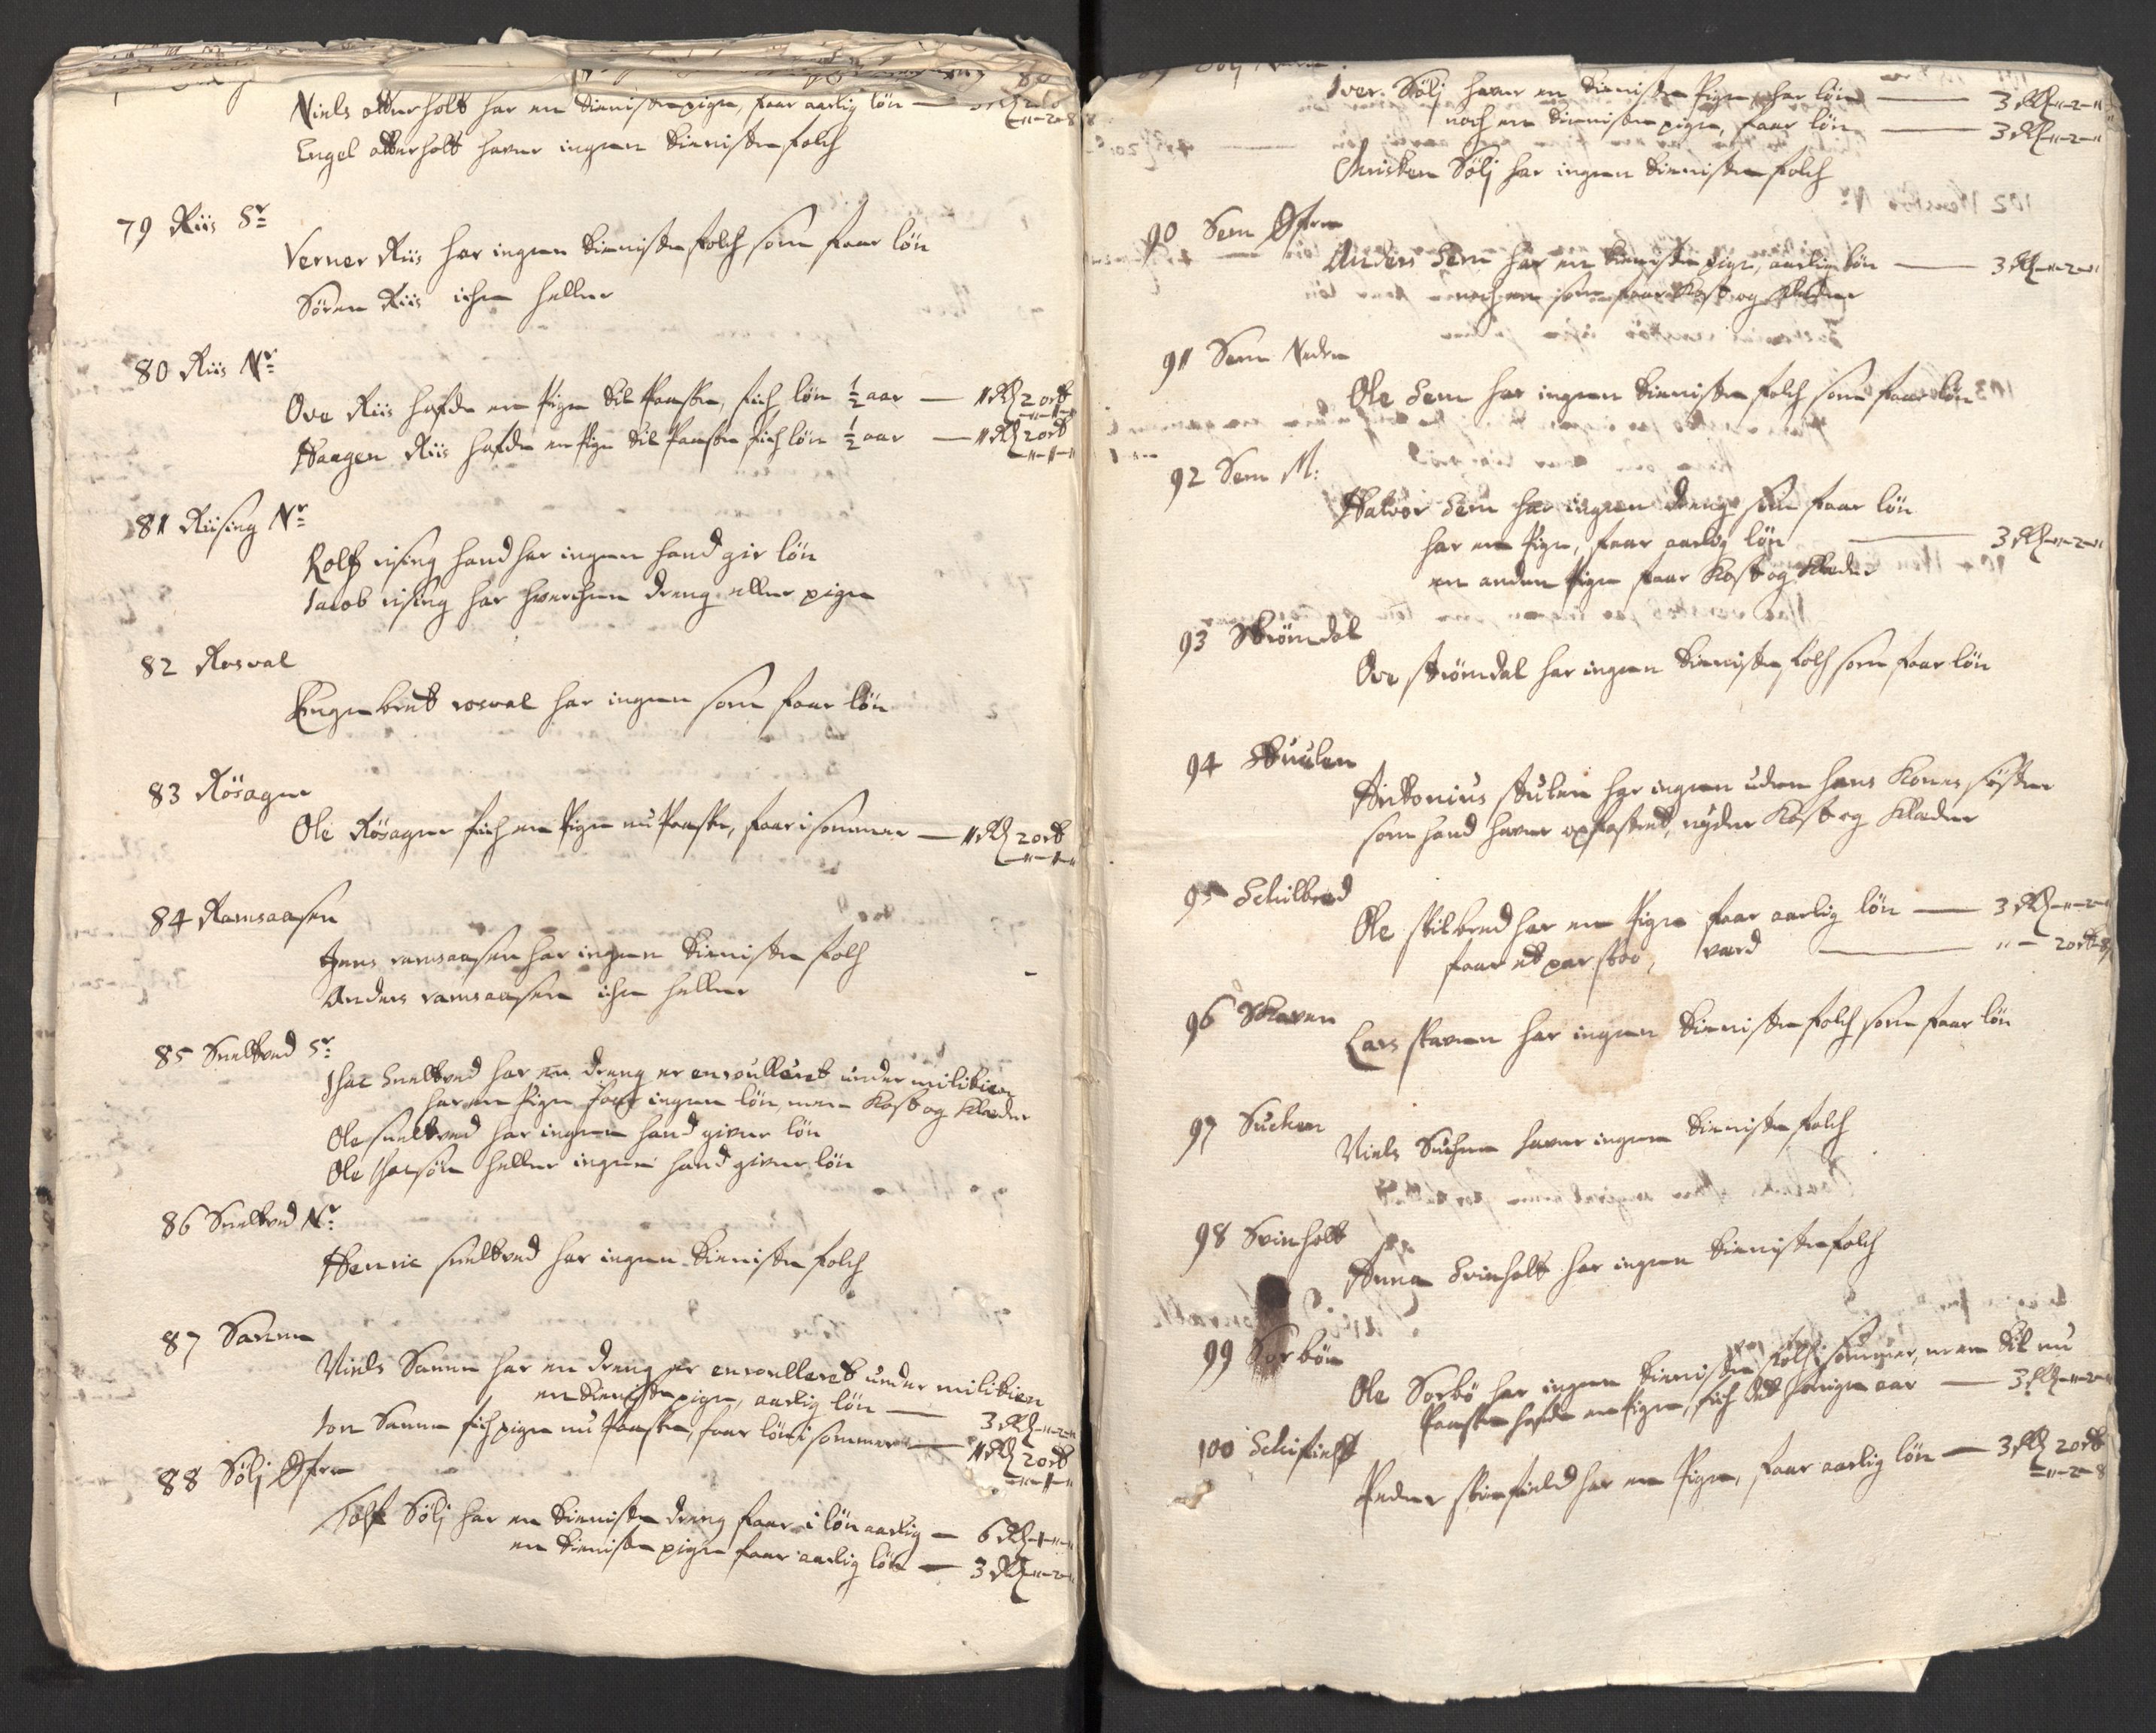 Niels otterholt har en tieniste pige, faar aarlig løn —
"-2-8
Engel otterholt haver ingen tieniste folch
79 Riis Sr
Verner Riis har ingen tieniste folch som faar løn
Sören Riis iche heller
80 Riis Nr
Ove Riis hafde en Pige til Paaske, fich løn ½ aar — 1 Rd 2 ort
"-1-"
Haagen Riis hafde en Pige til Paaske fich løn ½ aar — 1 Rd 2 ort
"-1-"
81 Riising Nr
Rolf rising hand har ingen hand gir løn
Jacob rising har hverchen dreng eller pige
82 Rosval
Engebret rosval har ingen som faar løn
83 Rösager
Ole Rösager fich en Pige nu Paaske, faar i sommer — 1 Rd 2 ort
"-1-"
84 Ramsaasen
Jens ramsaasen har ingen tieniste folch
Anders ramsaasen iche heller
85 Sneltved Sr
Isac Sneltved har en dreng er enroulleret under militien
har en Pige faar ingen løn, men Kost og Klæder
Ole sneltved har ingen hand giver løn
Ole Isacsön heller ingen hand giver løn
86 Sneltved Nr
Henric sneltved har ingen tieniste folch
87 Sanne
Niels Sanne har en dreng er enroulleret under militien
en tieniste pige, aarlig løn — 3 Rd-"-2-"
Jon Sanne fich pige nu Paaske, faar løn i sommer — 1 Rd 2 ort
"-1-"
88 Sölj Øfre
Tolf Sölj har en tieniste dreng faar i løn aarlig — 6 Rd-1-"-"
en tieniste pige faar aarlig løn — 3 Rd-"-2-"
Iver Sölj haver en tieniste Pige, har løn — 3 Rd-"-2-"
noch en tieniste pige, faar løn — 3 Rd-"-2-"
Christen Sölj har ingen tieniste folch
90 Sem Øfre
Anders Sem har en tieniste pige, aarlig løn — 3 Rd-"-2-"
noch en som faar Kost og Klæder
91 Sem Neder
Ole Sem har ingen tieniste folch som faar løn
92 Sem M:
Halvor Sem har ingen dreng som faar løn
har en Pige, faar aarlig løn — 3 Rd-"-2-"
en anden Pige faar Kost og Klæder
93 Strömdal
Ove strömdal har ingen tieniste folch som faar løn
94 Stuulen
Antonius stulen har ingen uden hans Kones søster
som hand haver opfostret, nyder Kost og Klæder
95 Schilbred
Ole skilbred har en Pige faar aarlig løn — 3 Rd-"-2-"
faar et par skoe, værd — "- 2 ort 8
96 Skaven
Lars skaven har ingen tieniste folch som faar løn
97 Suchen
Niels Suchen haver ingen tieniste folch
98 Svinholt
Anna Svinholt har ingen tieniste folch
99 Sorbön
Ole Sorbö har ingen tieniste folch i sommer, men til nu
Paaske hafde en Pige, fich det forige aar — 3 Rd-"-2-"
100 Schifield
Peder skifield har en Pige, faar aarlig løn — 3 Rd 2 ort
"-2-8